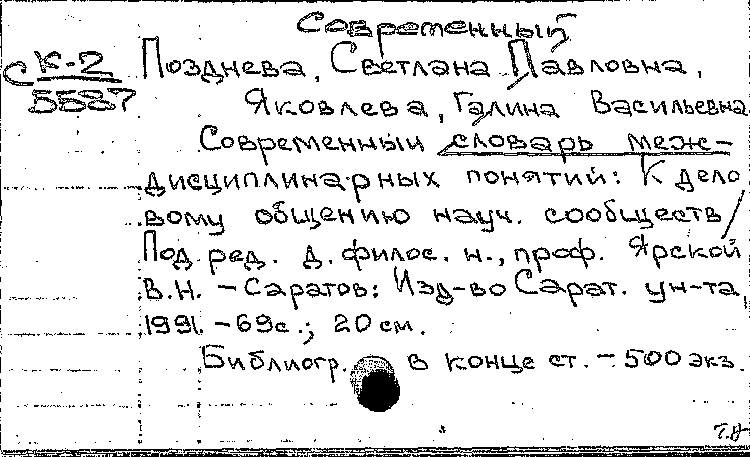 Современный
С К-2 Позднева, Светлана Павловна,
5587 Яковлева, Галина Васильевна
Современный словарь меж-
дисциплинарных понятий: К дело
вому общению науч. сообществ /
Под ред. д. филос. н., проф. Ярской
В.Н. – Саратов: Изд-во Сарат. ун-та,
1991. – 69с.; 20 см.
Библиогр. в конце ст. – 500 экз.